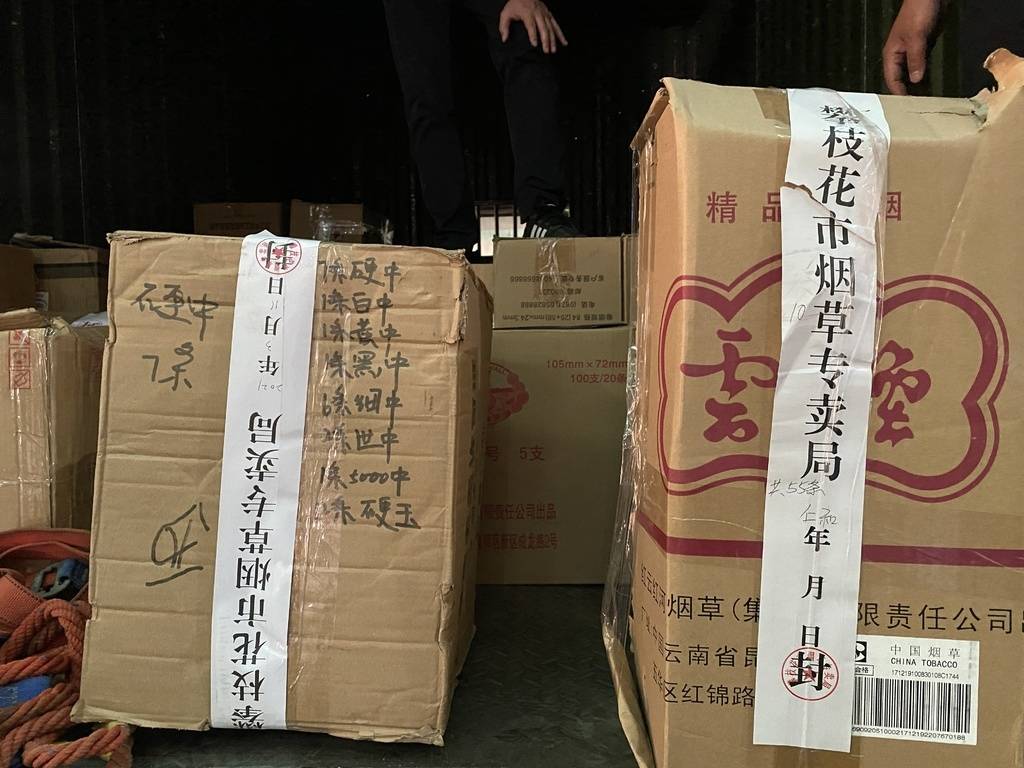 硬中
7条
攀枝花市烟草专卖局
2021年3月11日封
1条硬中
1条白中
1条黄中
1条黑中
6条细中
2条世中
1条5000中
1条硬玉
105mm×72mm
100支/20条
号 5支
责任公司出品
精品 烟
雲煙
攀枝花市烟草专卖局
10
共55条
仁和
年 月 日封
红云红河烟草(集 限责任公司
云南省昆
区红锦路
中国烟草
CHINA TOBACCO
合格
171219100830108C1744